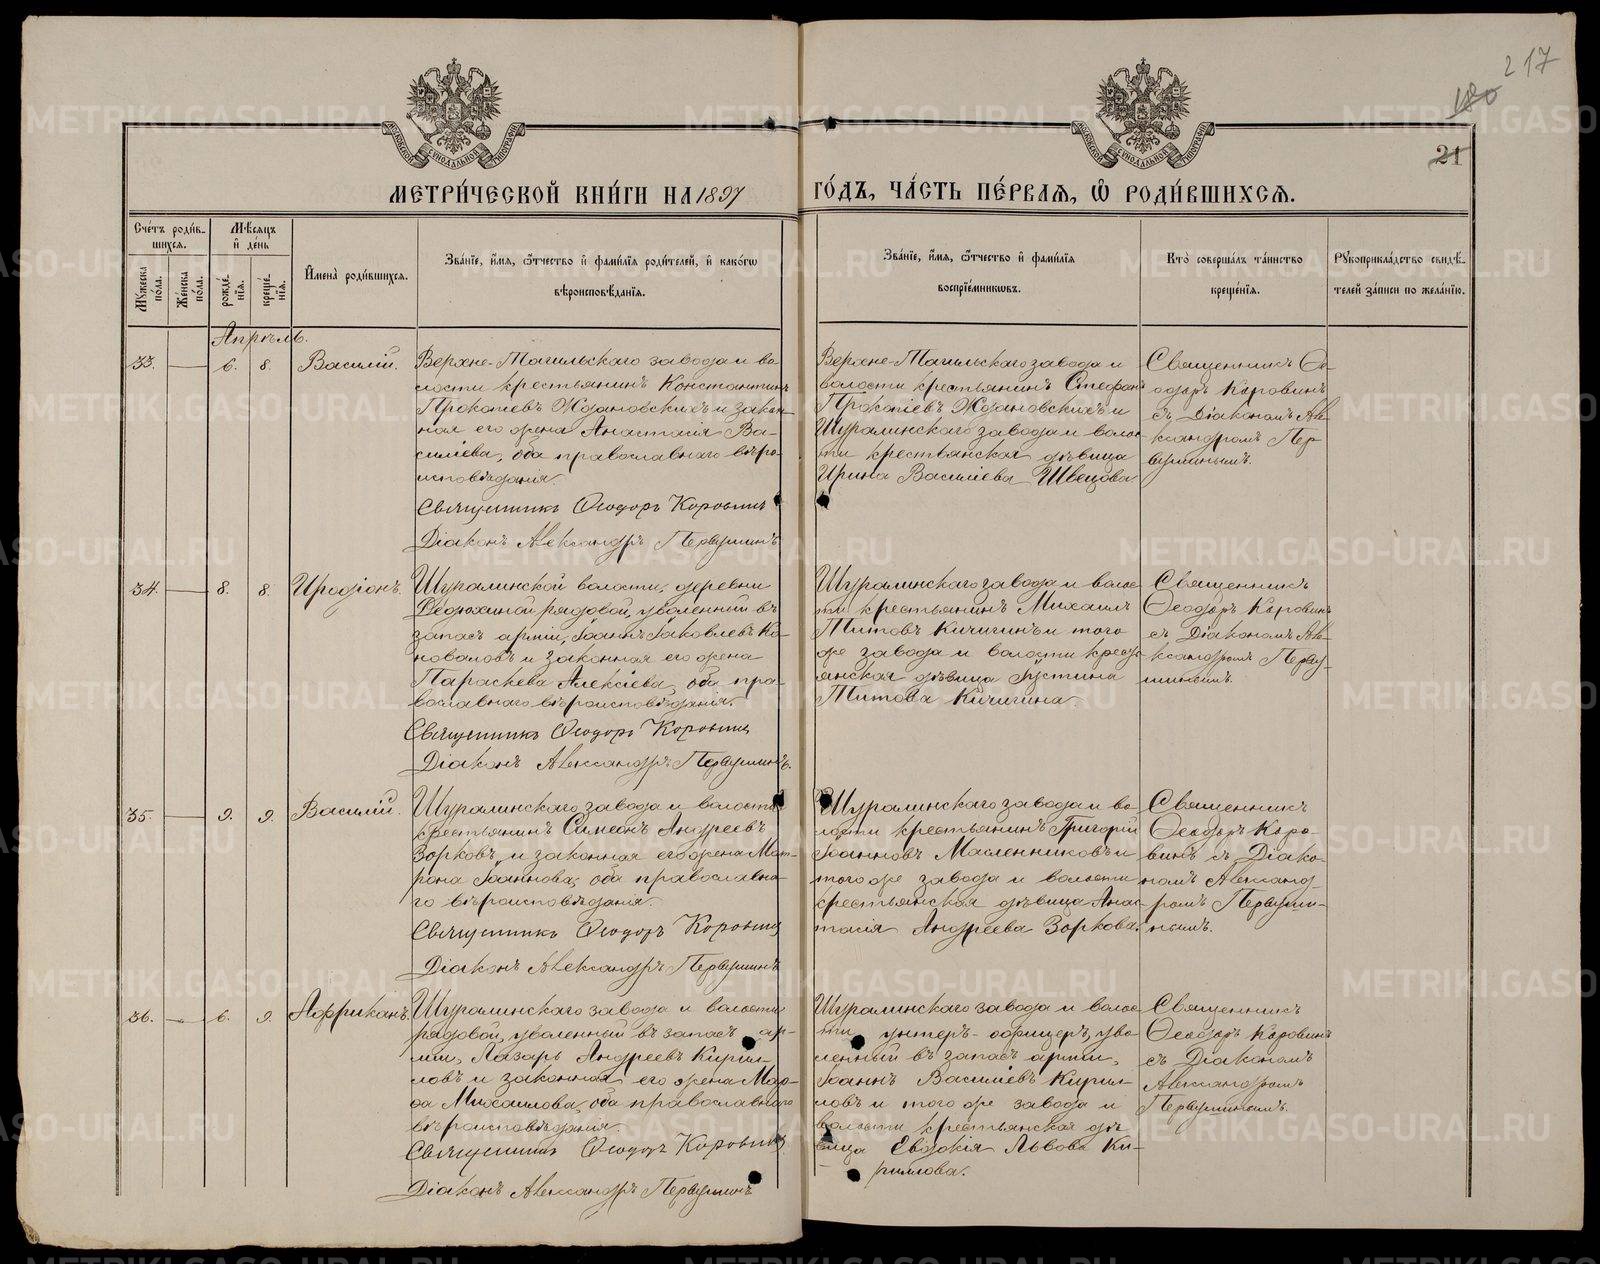 217
180
21
МОСКОВСКОЙ СѴНОДАЛЬНОЙ ТИПОГРАФІИ
МОСКОВСКОЙ СѴНОДАЛЬНОЙ ТИПОГРАФІИ
МЕТРИ́ЧЕСКОЙ КНИ́ГИ НА 1897 ГО́ДЪ, ЧА́СТЬ ПЕ́РВАЯ, Ѽ РОДИ́ВШИХСЯ.
Сче́тъ роди́вшихся.
Му́жеска по́ла.
Же́нска по́ла.
Мѣ́сяцъ и҆ де́нь
рожде́нїя.
креще́нїя.
И҆мена̀ роди́вшихся.
Зва́нїе, и҆́мя, ѻ҆́тчество и҆ фами́лїя роди́телей, и҆ како́гѡ
вѣроисповѣ́данїя.
Зва́нїе, и҆́мя, ѻ҆́тчество и҆ фами́лїя
воспрїе́мникѡвъ.
Кто̀ соверша́лъ та́инство
креще́нїя.
Рꙋкоприкла́дство свидѣ́-
телей за́писи по жела́нїю.
Апрѣль.
33.
6.
8.
Василій.
Верхне-Тагильскаго завода и во-
лости крестьянинъ Константинъ
Прокопіевъ Ждановскихъ и закон-
ная его жена Анастасія Ва-
силіева, оба православнаго вѣро-
исповѣданія.
Священникъ Ѳеодоръ Коровинъ
Діаконъ Александръ Первушинъ
Верхне-Тагильскаго завода и
волости крестьянинъ Стефанъ
Прокопіевъ Ждановскихъ и
Шуралинскаго завода и волос-
ти крестьянская дѣвица
Ирина Василіева Швецова
Священникъ Ѳе-
одоръ Коровинъ
съ Діакономъ Але-
ксандромъ Пер
вушинымъ.
34.
8.
8.
Иродіонъ.
Шуралинской волости, деревни
Дедюхиной рядовой, уволенный въ
запасъ арміи, Іоаннъ Іаковлевъ Ко-
новаловъ и законная его жена
Параскева Алексіева, оба пра-
вославнаго вѣроисповѣданія.
Священникъ Ѳеодоръ Коровинъ
Діаконъ Александръ Первушинъ.
Шуралинскаго завода и волос-
ти крестьянинъ Михаилъ
Титовъ Кичигинъ и того
же завода и волости кресть
янская дѣвица Іустина
Титова Кичигина.
Священникъ
Ѳеодоръ Коровинъ
съ Діакономъ Але-
ксандромъ Перву-
шинымъ.
35.
9.
9.
Василій.
Шуралинскаго завода и волости
крестьянинъ Симеонъ Андреевъ
Зорковъ и законная его жена Мат-
рона Іоаннова, оба православна-
го вѣроисповѣданія.
Священникъ Ѳеодоръ Коровинъ
Діаконъ Александръ Первушинъ
Шуралинскаго завода и во-
лости крестьянинъ Григорій
Іоанновъ Масленниковъ и
того же завода и волости
крестьянская дѣвица Анас-
тасія Андреева Зоркова.
Священникъ
Ѳеодоръ Коро-
винъ съ Діако-
номъ Александ-
ромъ Первуши-
нымъ.
36.
6.
9.
Африканъ.
Шуралинскаго завода и волости
рядовой, уволенный въ запасъ ар-
міи, Лазарь Андреевъ Кирил-
ловъ и законная его жена Мар-
ѳа Михаилова, оба православнаго
вѣроисповѣданія.
Священникъ Ѳеодоръ Коровинъ
Діаконъ Александръ Первушинъ
Шуралинскаго завода и волос-
ти унтеръ-офицеръ, уво-
ленный въ запасъ арміи,
Іоаннъ Василіевъ Кирил-
ловъ и того же завода и
волости крестьянская дѣ-
вица Евдокія Львова Ки-
риллова.
Священникъ
Ѳеодоръ Коровинъ
съ Діакономъ
Александромъ
Первушинымъ.
METRIKI.GASO-URAL.RU